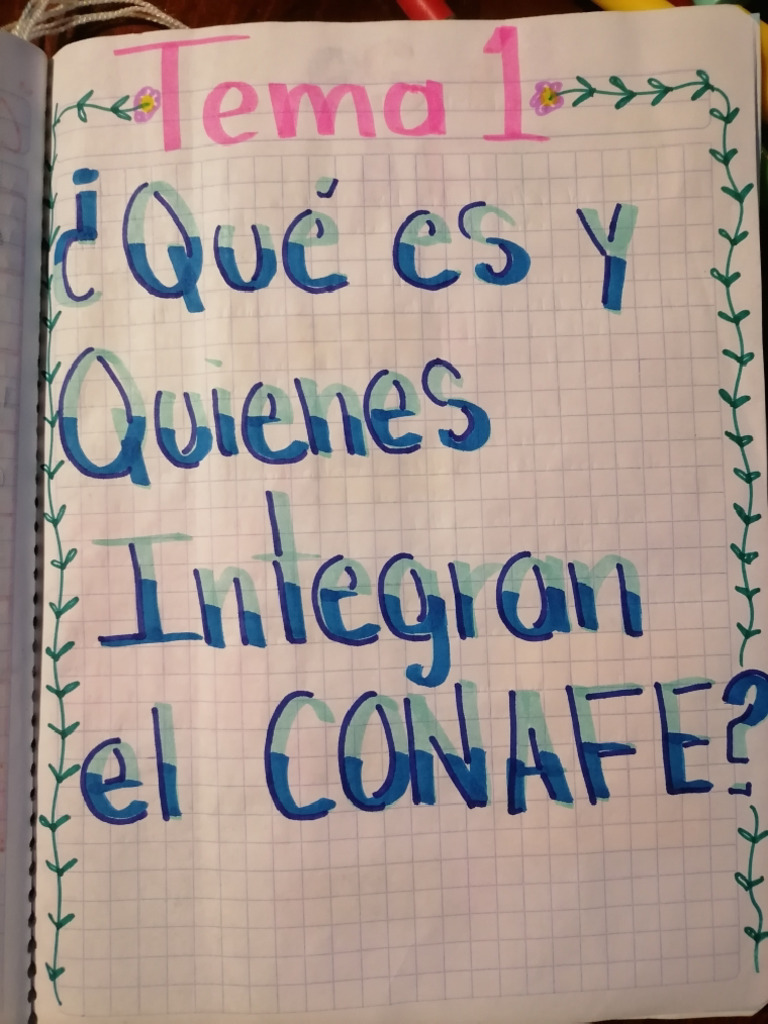 Tema 1
¿Qué es y
Quienes
Integran
el CONAFE?